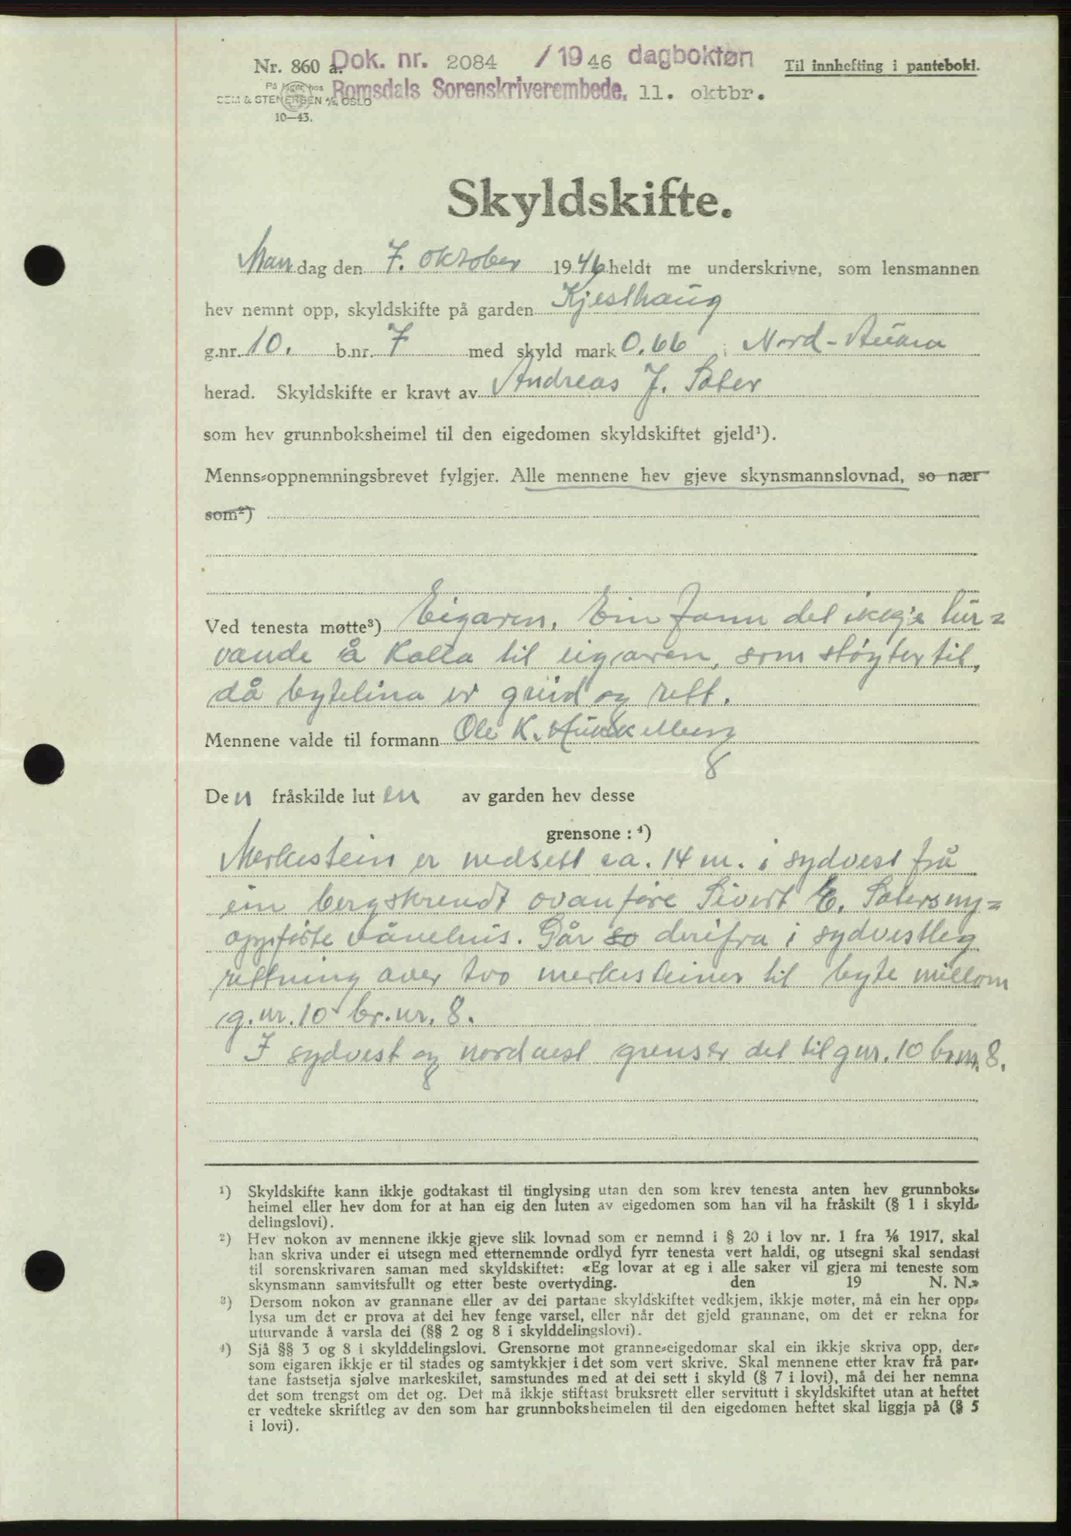 Nr. 860 a. Dok. nr. 2084 /1946 dagboktøn
Til innhefting i pantebok.
Romsdals Sorenskriverembede, 11. oktbr.
SEM & STENERSEN A/S OSLO
10—43.
Skyldskifte.
Mandag den 7. oktober 1946 heldt me underskrivne, som lensmannen
hev nemnt opp, skyldskifte på garden Kjeslhaug
g.nr. 10. b.nr. 7 med skyld mark 0.66 i Nord-Aukra
herad. Skyldskifte er kravt av Andreas J. Sæter
som hev grunnboksheimel til den eigedomen skyldskiftet gjeld¹).
Menns-oppnemningsbrevet fylgjer. Alle mennene hev gjeve skynsmannslovnad, so nær
som²)
Ved tenesta møtte³) Eigaren. Ein fann det ikkje tur-
vande å kalla til eigaren, som støyter til,
då bytelina er greid og rett.
Mennene valde til formann Ole K.
Den fråskilde luten av garden hev desse
grensone : ⁴)
Merkestein er nedsett ca. 14 m. i sydvest frå
ein bergskrendt ovanføre Sivert E. Sæters ny-
oppførte vånehus. Går so derifra i sydvestleg
rettning over tvo merkesteiner til byte millom
g.nr. 10 br.nr. 8.
I sydvest og nordvest grenser det til gnr. 10 br.nr. 8.
¹) Skyldskifte kann ikkje godtakast til tinglysing utan den som krev tenesta anten hev grunnboks-
heimel eller hev dom for at han eig den luten av eigedomen som han vil ha fråskilt (§ 1 i skyld-
delingslovi).
²) Hev nokon av mennene ikkje gjeve slik lovnad som er nemnd i § 20 i lov nr. 1 fra ⅛ 1917, skal
han skriva under ei utsegn med etternemnde ordlyd fyrr tenesta vert haldi, og utsegni skal sendast
til sorenskrivaren saman med skyldskiftet: «Eg lovar at eg i alle saker vil gjera mi teneste som
skynsmann samvitsfullt og etter beste overtyding. den 19 N. N.»
³) Dersom nokon av grannane eller av dei partane skyldskiftet vedkjem, ikkje møter, må ein her opp-
lysa um det er prova at dei hev fenge varsel, eller når det gjeld grannane, om det er rekna for
uturvande å varsla dei (§§ 2 og 8 i skylddelingslovi).
⁴) Sjå §§ 3 og 8 i skylddelingslovi. Grensorne mot granne-eigedomar skal ein ikkje skriva opp, der-
som eigaren ikkje er til stades og samtykkjer i det som vert skrive. Skal mennene etter krav frå par-
tane fastsetja sjølve markeskilet, samstundes med at dei sett i skyld (§ 7 i lovi), må dei her nemna
det som trengst om det og. Det må ikkje stiftast bruksrett eller servitutt i skyldskiftet utan at heftet
er vedteke skriftleg av den som har grunnboksheimelen til den eigedomen heftet skal liggja på (§ 5
i lovi).